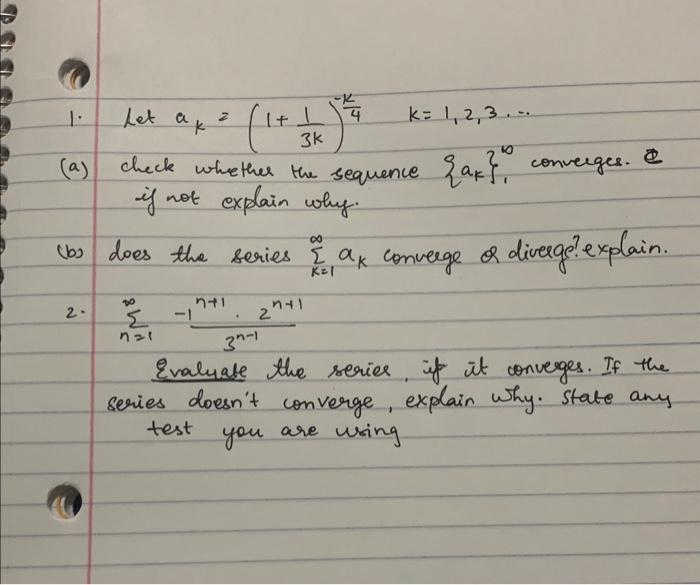 1. Let a_k = (1 + 1/3k)^(-k/4) k = 1, 2, 3 . . .
(a) check whether the sequence {a_k}_1^∞ converges.
if not explain why.
(b) does the series ∑_{k=1}^∞ a_k converge or diverge? explain.
2. ∑_{n=1}^∞ -1^{n+1} . 2^{n+1} / 3^{n-1}
Evaluate the series, if it converges. If the
series doesn't converge, explain why. State any
test you are using